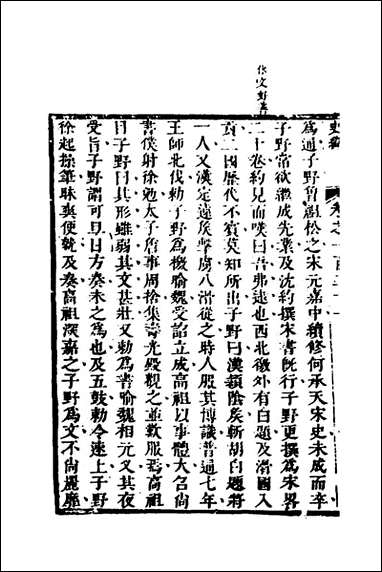 史緯
為通子野曾祖松之宋元嘉中續修何承天宋史未成而卒
子野常欲繼成先業及沈約撰宋書既行子野更撰為宋畧
二十卷約見而嘆曰吾弗逮也西北徼外有白題及滑國入
貢二國歷代不賓莫知所出子野曰漢潁陰侯斬胡白題將
一人又漢定遠侯擊虜八滑從之時人服其博識普通七年
王師北伐勅子野為檄喻魏受詔立成高祖以事體大召尚
書僕射徐勉太子詹事周捨集壽光殿觀之並歎服焉高祖
目子野曰其形雖弱其文甚壯又勅為書喻魏相元叉其夜
受旨子野謂可旦日方奏未之為也及五鼓勅令速上子野
徐起操筆昧爽便就及奏高祖深嘉之子野為文不尚麗靡